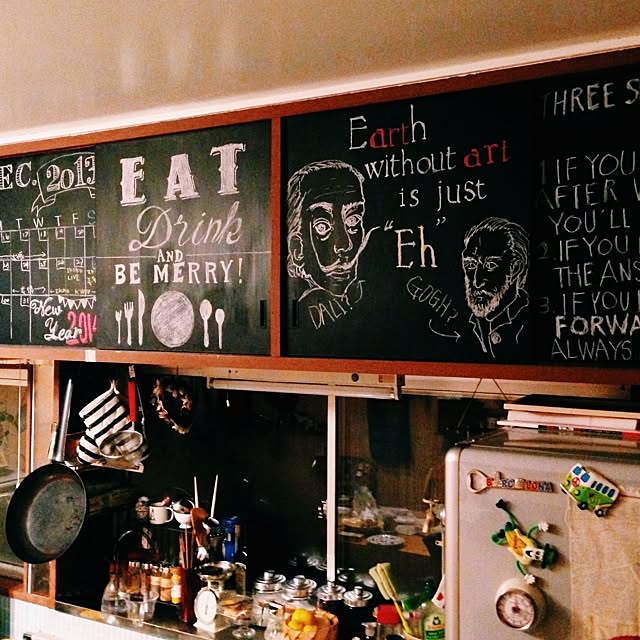 EC. 2013
T W T F S
New
Year 2014
EAT
Drink
AND
BE MERRY!
Earth
without art
is just
"Eh"
DALI?
GOGH?
THREE S
1 IF YOU
AFTER
YOU'LL
2. IF YOU
THE ANS
3 IF YOU
FORWA
ALWAYS
BARCELONA